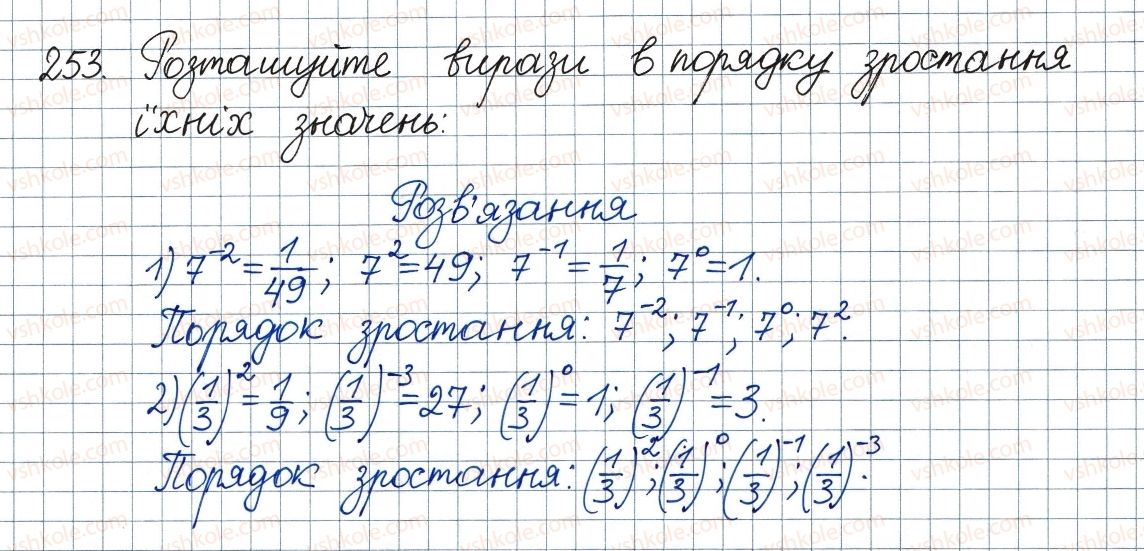 253. Розташуйте вирази в порядку зростання
їхніх значень:
Розв'язання
1) 7⁻² = 1/49; 7² = 49; 7⁻¹ = 1/7; 7⁰ = 1.
Порядок зростання: 7⁻²; 7⁻¹; 7⁰; 7².
2) (1/3)² = 1/9; (1/3)⁻³ = 27; (1/3)⁰ = 1; (1/3)⁻¹ = 3.
Порядок зростання: (1/3)²; (1/3)⁰; (1/3)⁻¹; (1/3)⁻³.